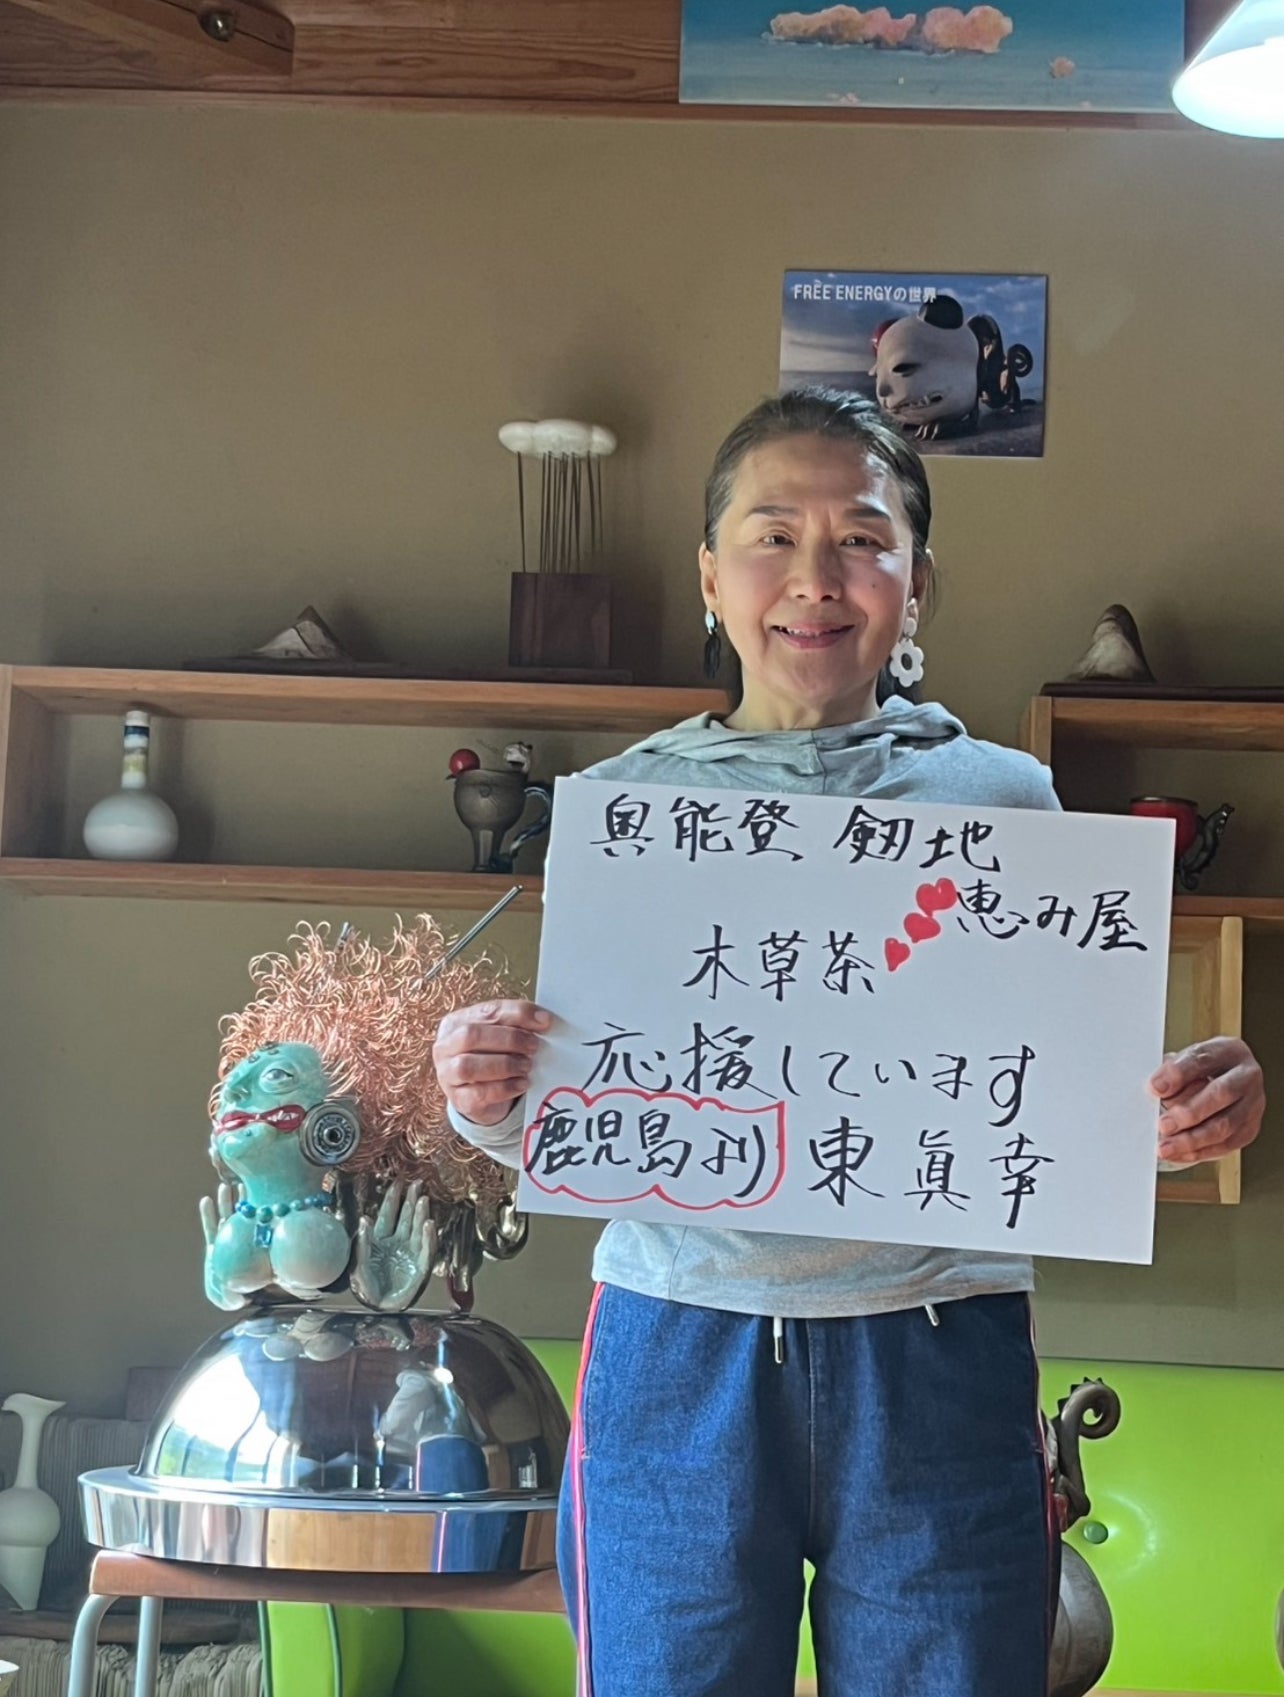 FREE ENERGYの世界
奥能登 劔地
恵み屋
木草茶
応援しています
鹿児島より 東 眞幸